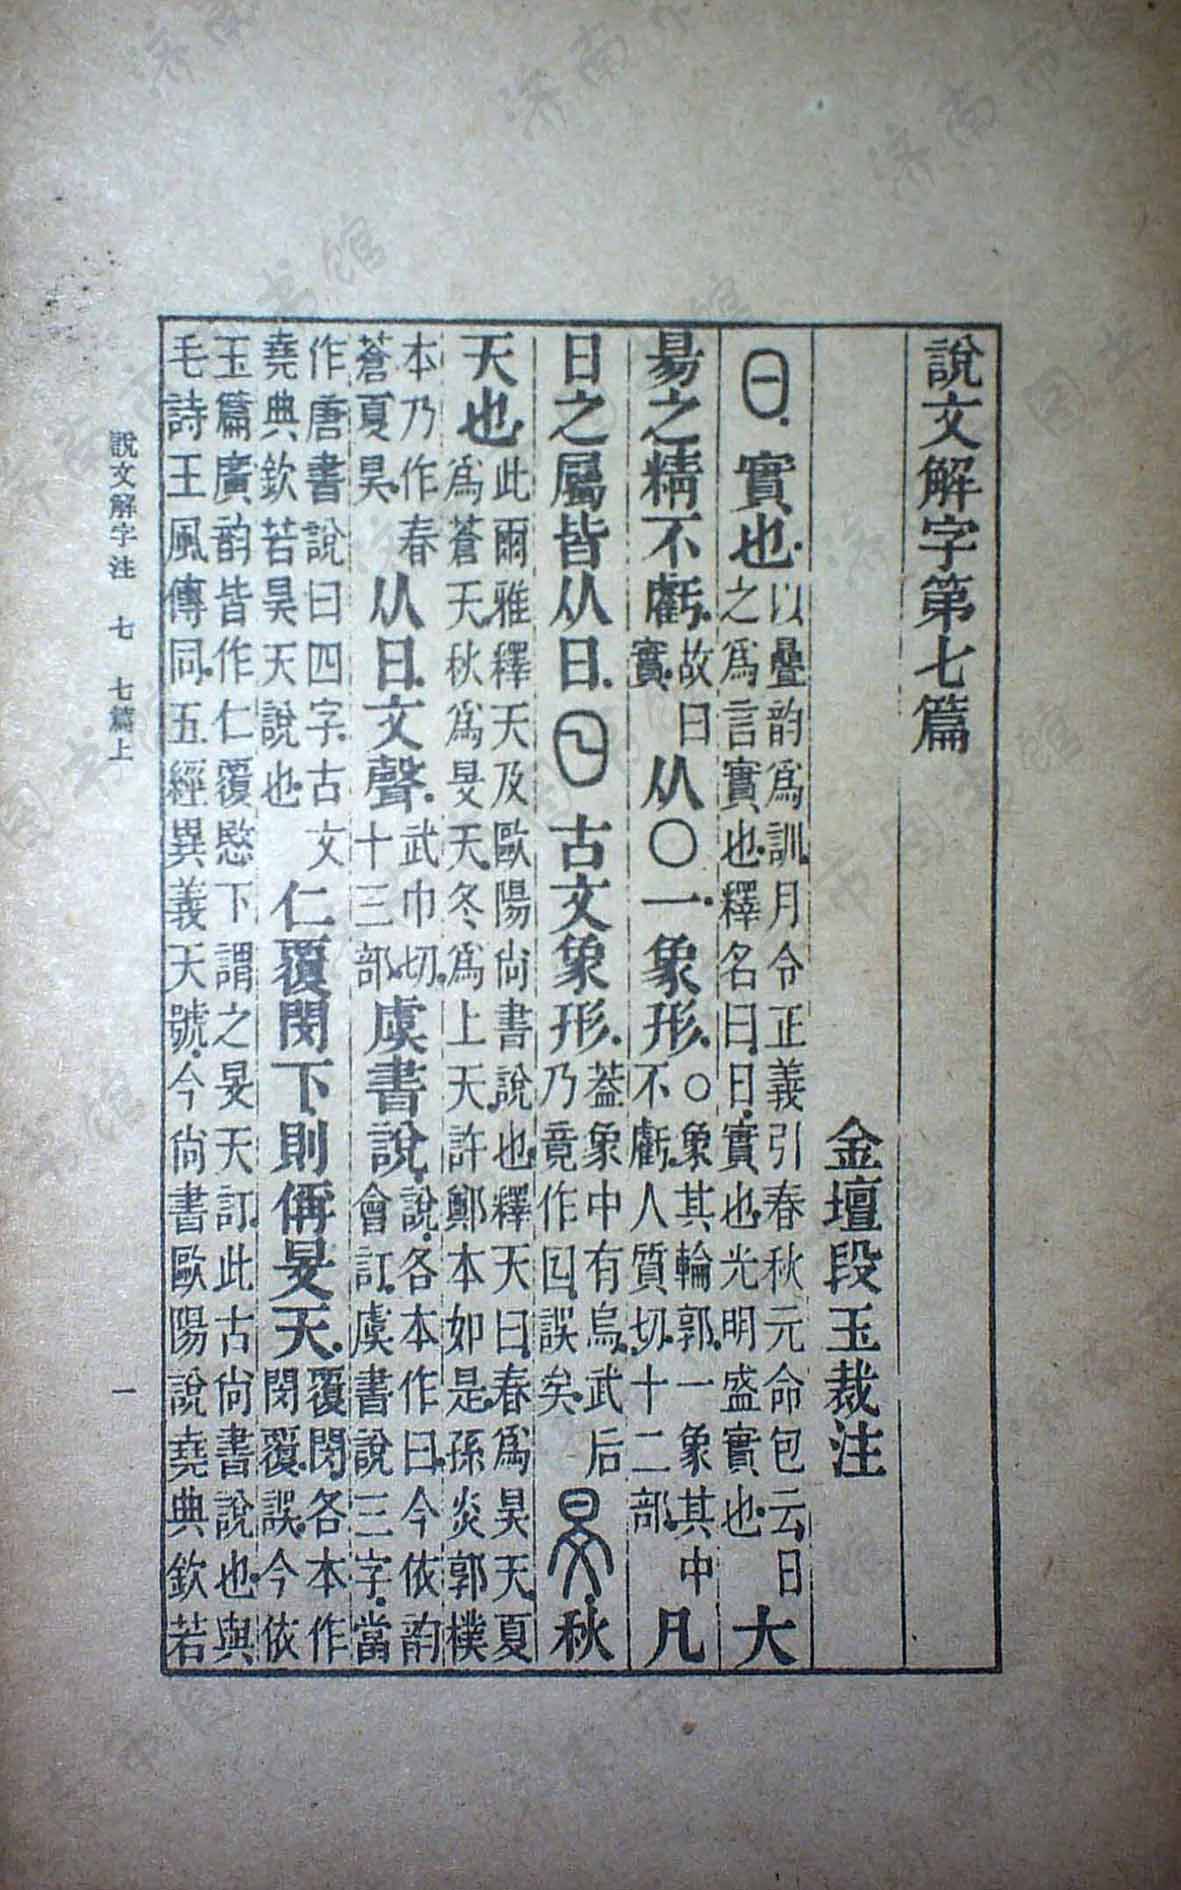 說文解字第七篇
金壇段玉裁注
日.實也.以曡韵爲訓.月令正義引春秋元命包云.日之爲言實也.釋名曰.日.實也.光明盛實也.大
昜之精不虧.故曰實.从○一.象形.○象其輪郭.一象其中不虧.人質切.十二部.凡
日之屬皆从日.古文象形.葢象中有烏.武后乃竟作囜.誤矣.旻.秋
天也.此爾雅釋天及歐陽尙書說也.釋天曰.春爲昊天.夏爲蒼天.秋爲旻天.冬爲上天.許鄭本如是.孫炎郭樸
本乃作春蒼夏昊.从日.文聲.武巾切.十三部.虞書說.說.各本作曰.今依韵會訂.虞書說三字.當
作唐書說曰四字.古文堯典欽若昊天說也.仁覆閔下.則偁旻天.覆閔各本作閔覆.誤.今依
玉篇廣韵皆作仁覆愍下謂之旻天訂.此古尙書說也.與毛詩王風傳同.五經異義天號.今尙書歐陽說堯典欽若
說文解字注 七 七篇上 一
济南市图书馆